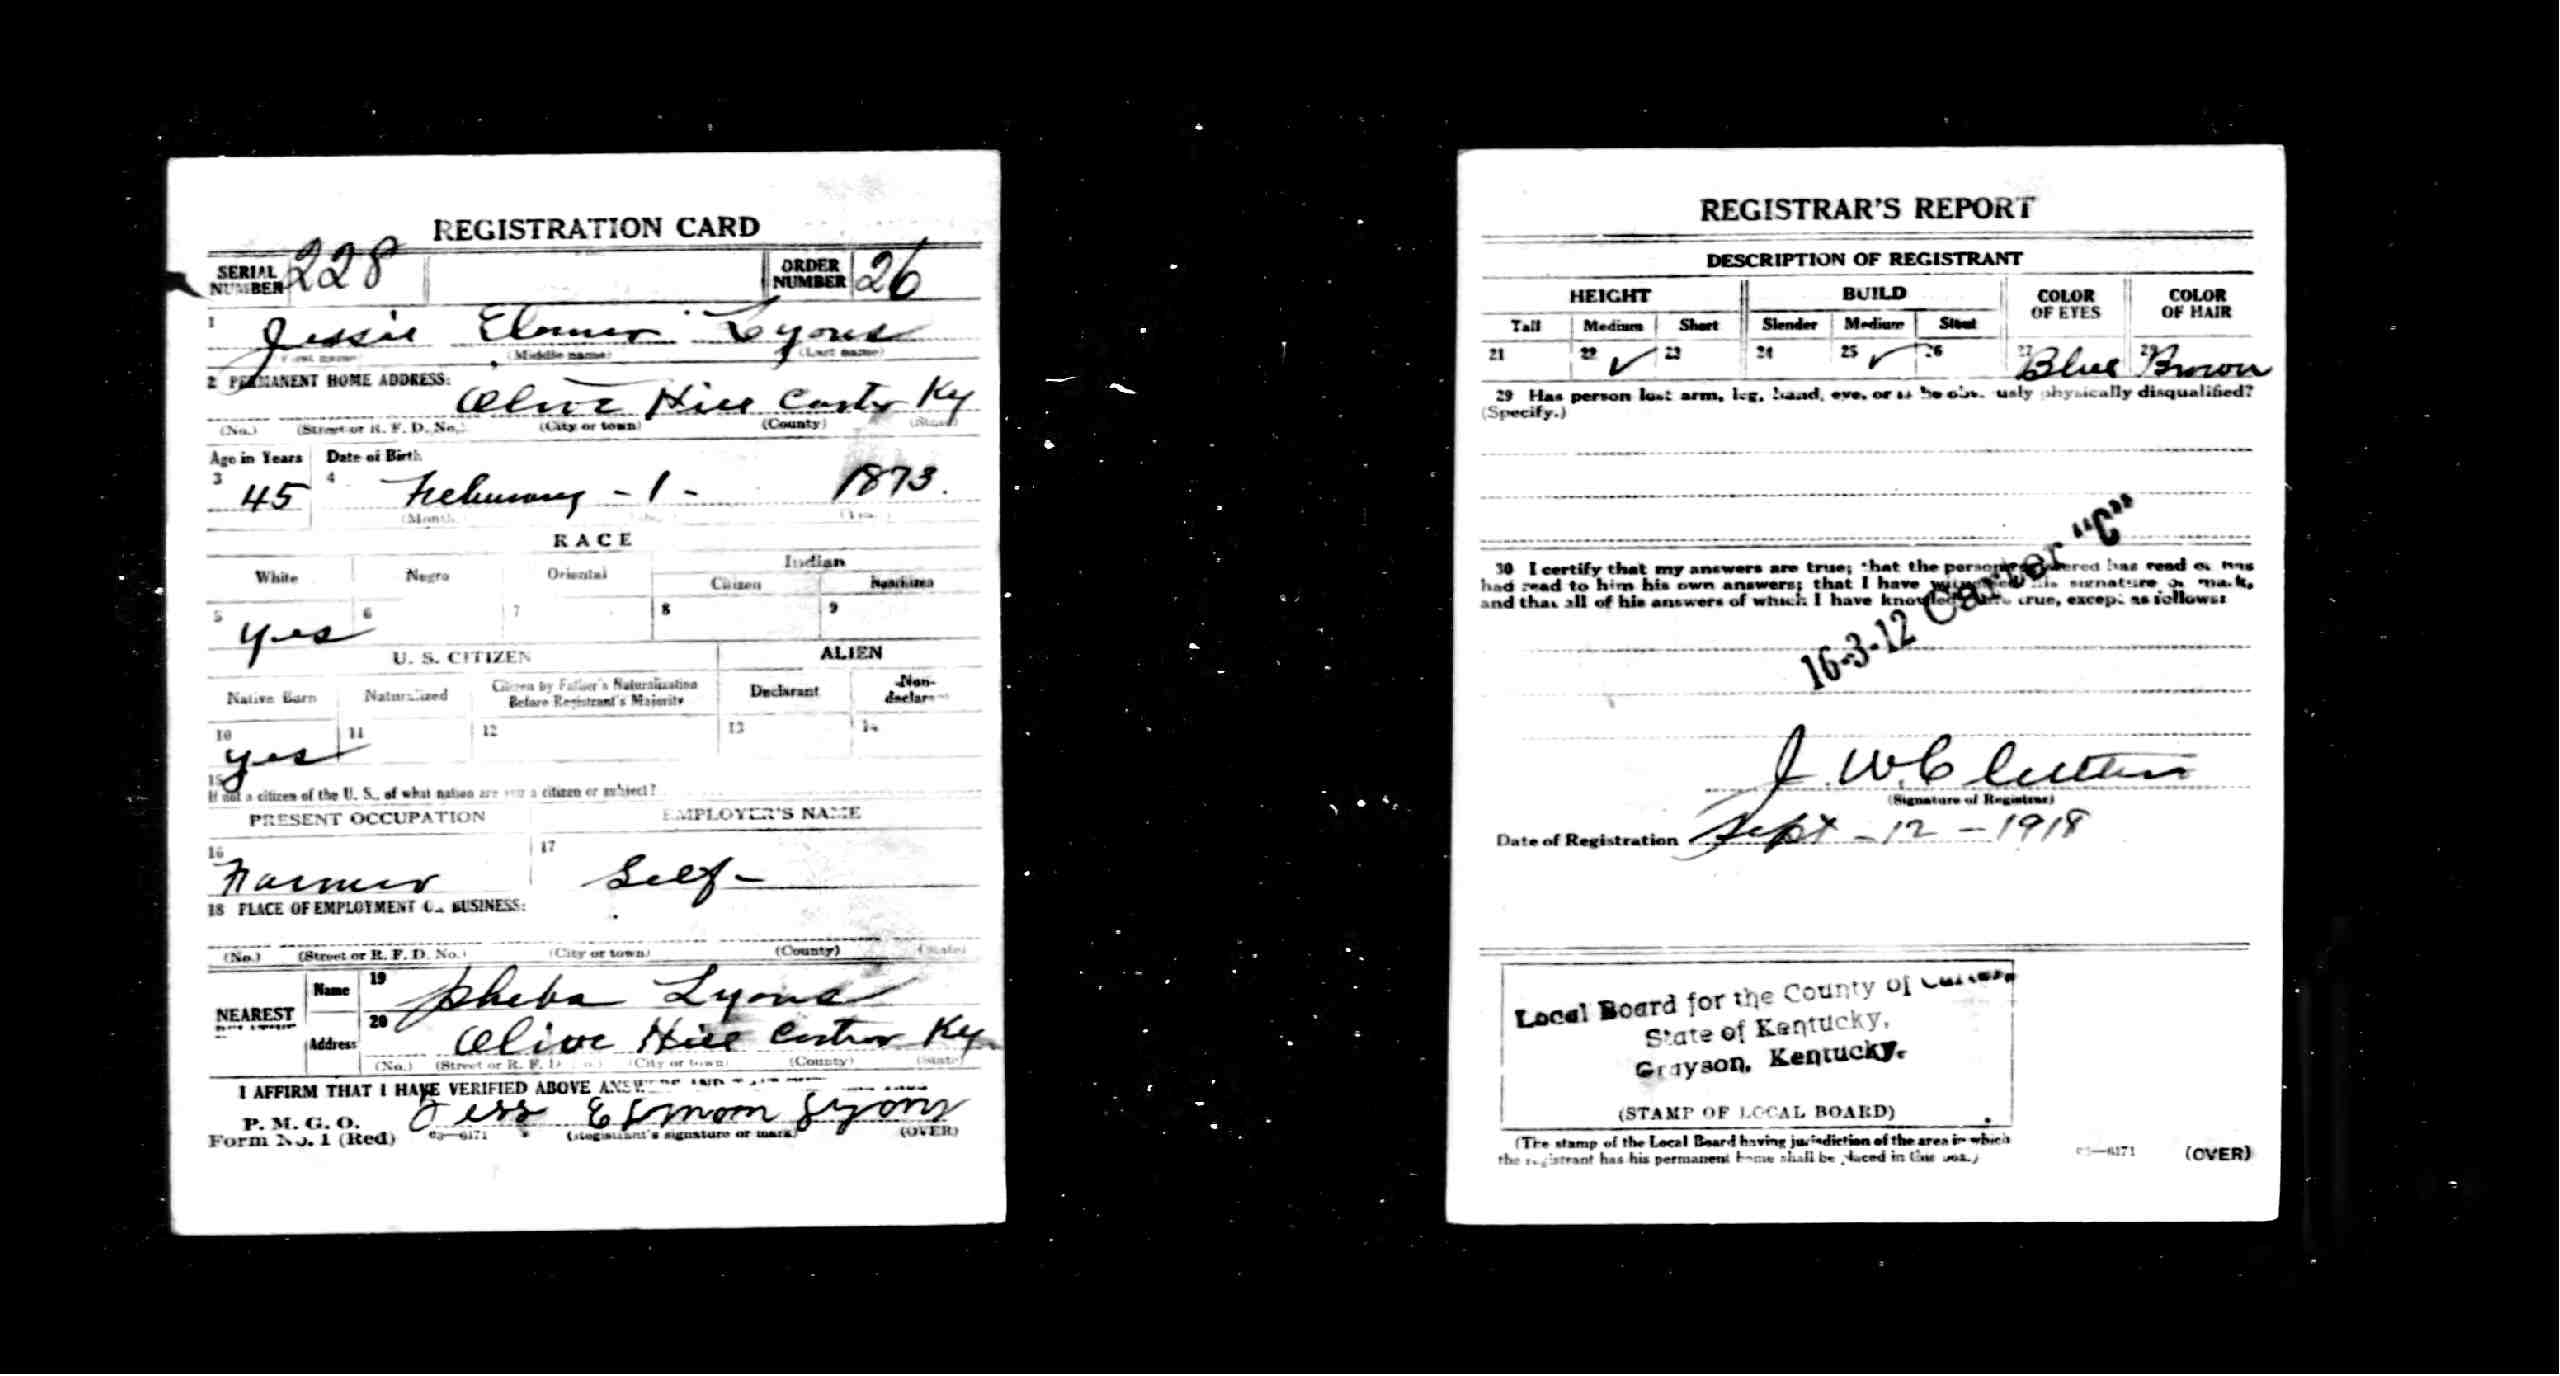 REGISTRATION CARD
SERIAL NUMBER 228 ORDER NUMBER 26
1 Jessie Elmer Lyons
(First name) (Middle name) (Last name)
2 PERMANENT HOME ADDRESS:
Olive Hill Carter Ky
(No.) (Street or R. F. D. No.) (City or town) (County) (State)
Age in Years Date of Birth
3 45 4 February - 1 - 1873.
(Month) (Year)
RACE
White Negro Oriental Indian
Citizen Noncitizen
5 yes 6 7 8 9
U. S. CITIZEN ALIEN
Native Born Naturalized Citizen by Father's Naturalization Before Registrant's Majority Declarant Non-declarant
10 yes 11 12 13 14
15
If not a citizen of the U. S., of what nation are you a citizen or subject?
PRESENT OCCUPATION EMPLOYER'S NAME
16 Farmer 17 Self -
18 PLACE OF EMPLOYMENT OR BUSINESS:
(No.) (Street or R. F. D. No.) (City or town) (County) (State)
NEAREST RELATIVE Name 19 Pheba Lyons
Address 20 Olive Hill Carter Ky.
(No.) (Street or R. F. D. No.) (City or town) (County) (State)
I AFFIRM THAT I HAVE VERIFIED ABOVE ANSWERS AND
P. M. G. O.
Form No. 1 (Red) Jess Lyons
03—6171 (Registrant's signature or mark) (OVER)
REGISTRAR'S REPORT
DESCRIPTION OF REGISTRANT
HEIGHT BUILD COLOR OF EYES COLOR OF HAIR
Tall Medium Short Slender Medium Stout
21 22 ✓ 23 24 25 ✓ 26 27 Blue 28 Brown
29 Has person lost arm, leg, hand, eye, or is he obviously physically disqualified?
(Specify.)
30 I certify that my answers are true; that the person registered has read or has
had read to him his own answers; that I have witnessed his signature or mark,
and that all of his answers of which I have knowledge are true, except as follows:
16-3-12 Carter "C"
J. W.
(Signature of Registrar)
Date of Registration Sept - 12 - 1918
Local Board for the County of Carter,
State of Kentucky,
Grayson, Kentucky.
(STAMP OF LOCAL BOARD)
(The stamp of the Local Board having jurisdiction of the area in which
the registrant has his permanent home shall be placed in this box.)
03—6171 (OVER)